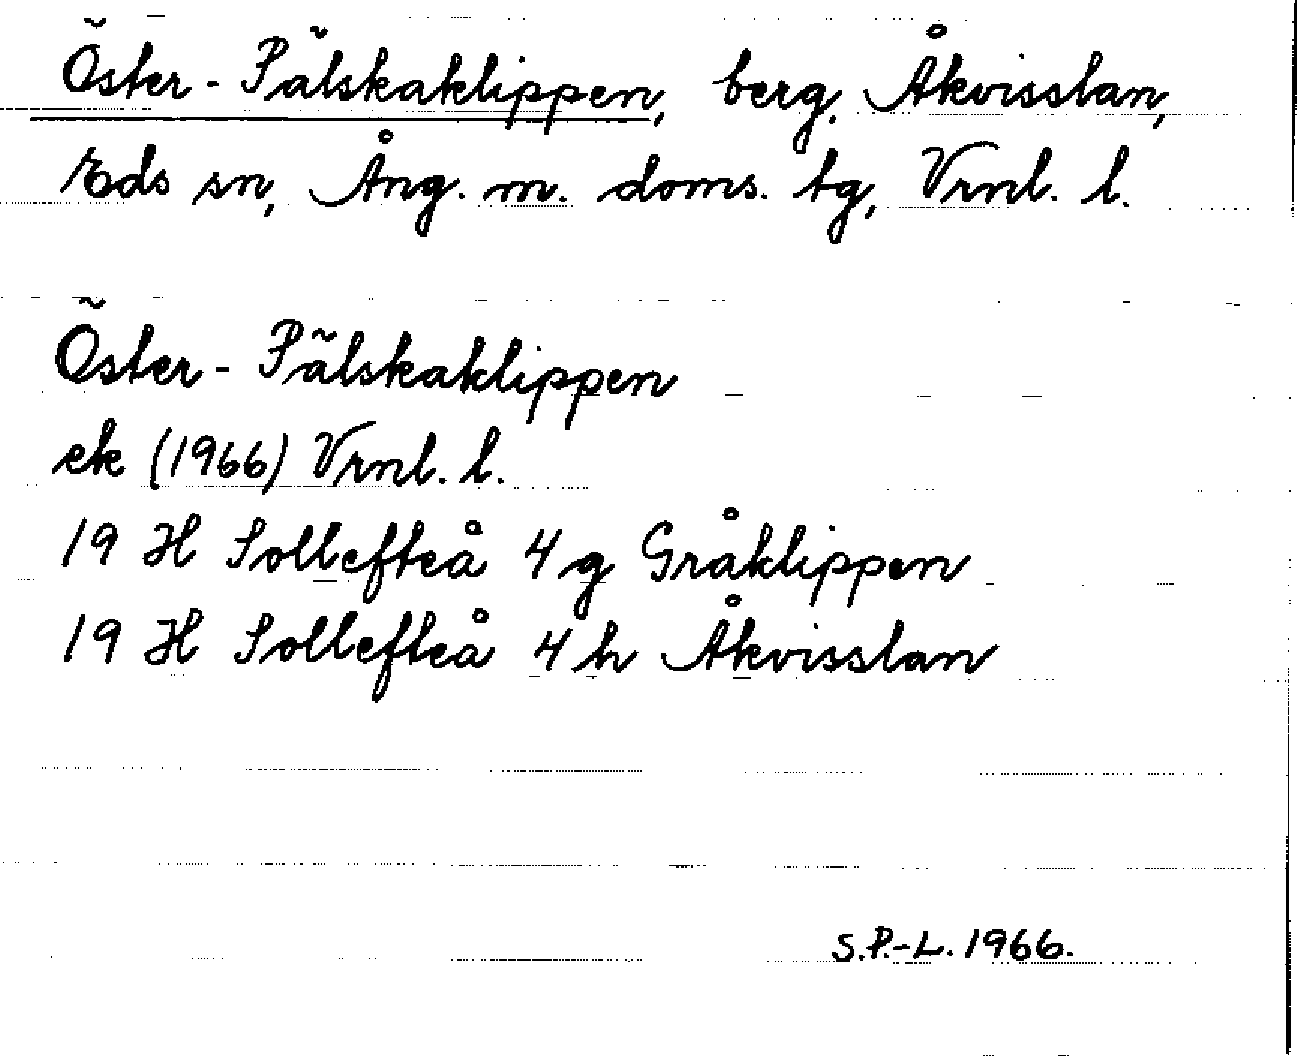 Öster-Pälskaklippen, berg, Åkvisslan,
Eds sn, Ång. m. doms. tg, Vrnl. l.
Öster-Pälskaklippen
ek (1966) Vrnl. l.
19 H Sollefteå 4 g Gråklippen
19 H Sollefteå 4 h Åkvisslan
S.P.-L. 1966.